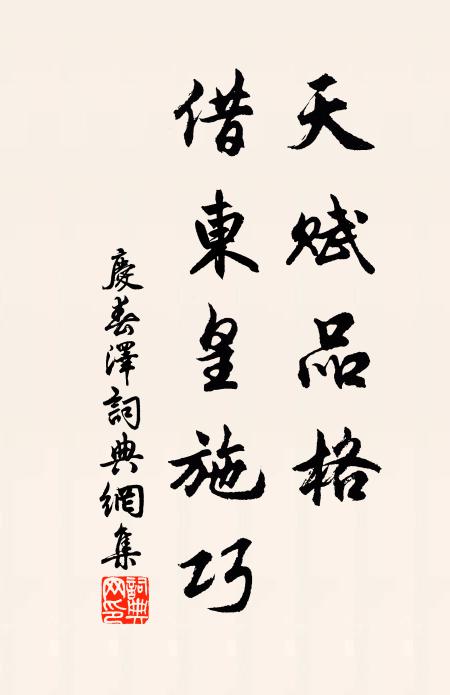 天賦品格
借東皇施巧
慶春澤詞典網集
詞典網印